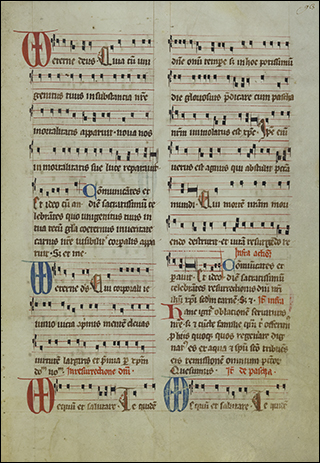 eterne deus Quia cum uni
genitus tuus in substantia nre
mortalitatis apparuit noua nos
inmortalitatis sue luce reparauit
Communicantes et
Et ideo cu an diem sacratissimum ce
lebrantes quo unigenitus tuus in
tua tecum gla coeternus in ueritate
carnis nre uisibilis corporalis appa
ruit Sz et me
eterne ds Qui corporali ie
iunio uicia comprimis mente eleuas
uirtute largiris et premia p xpm
dnm nrm In resurrectione dni
equum et salutare Te quidem
dne omi tempe sz in hoc potissimum
die gloriosius predicare cum pascha
nrm immolatus est xpc Ipe eni
uerus est agnus qui abstulit peccata
mundi Qui morte nram mori
endo destruxit et uita resurgendo re
Infra actionem
parauit Et ideo Communicantes et
diem sacratissimum
celebrantes resurrectionis dni nri
ihu xpi scdm carne Sz et Infra
Hanc igitur oblatione seruitutis
nre sz et cuncte familie tue qm tibi offerim
p hiis quoque quos regenerare dig
natus es ex aqua et spu sco tribuens
eis remissione omnium peccatorum
Quesumus It de pascha
equum et salutare Te quidem